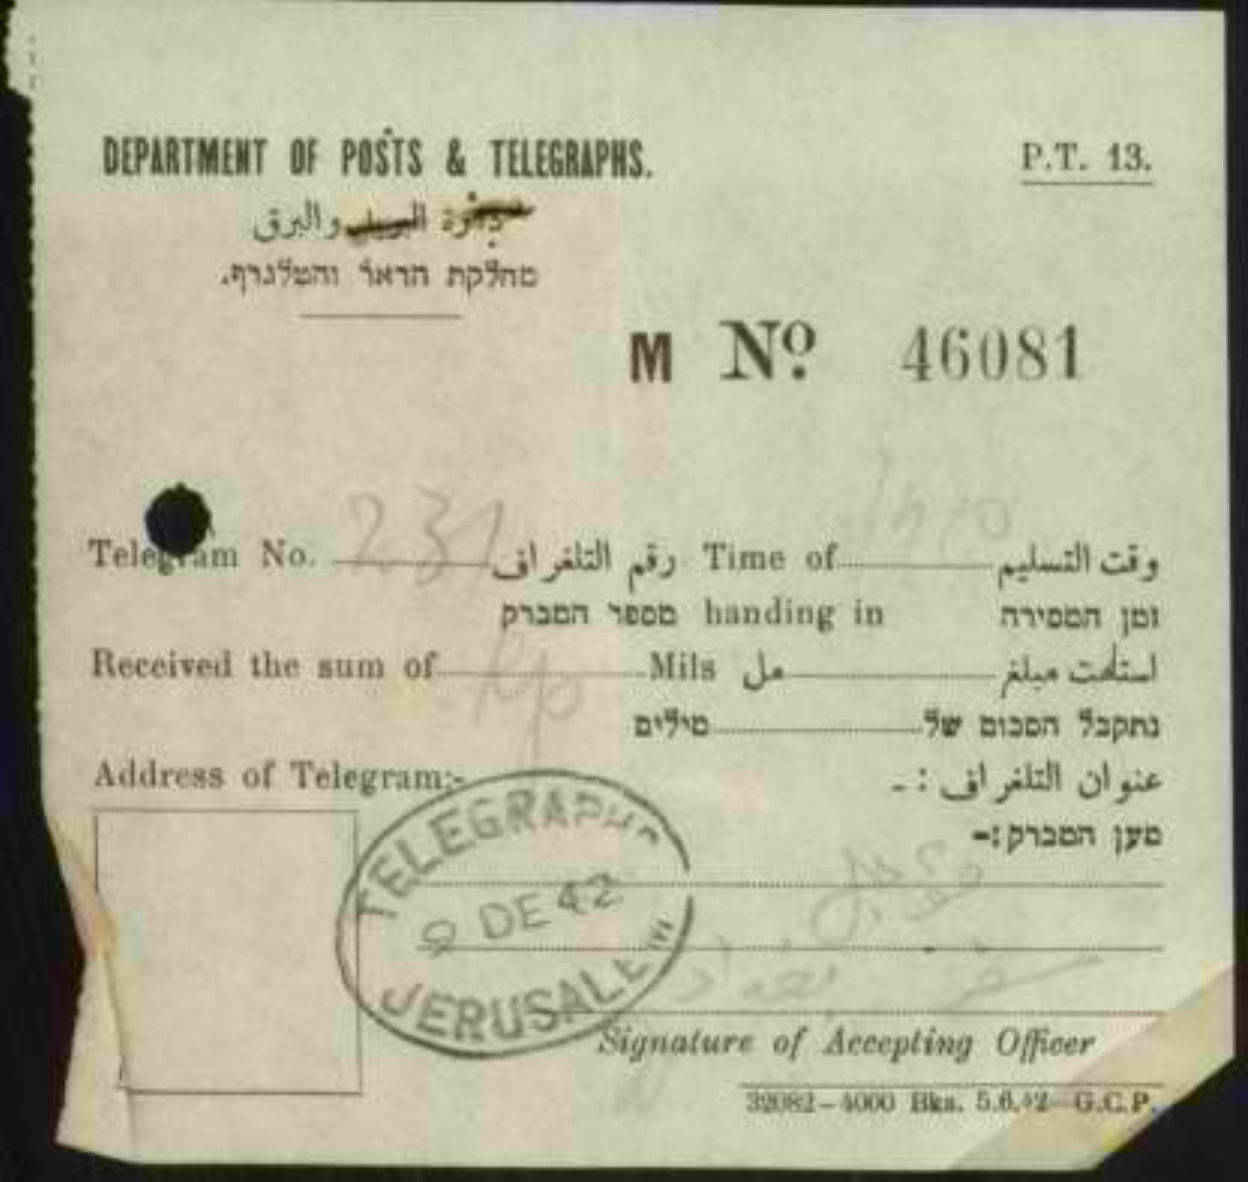 DEPARTMENT OF POSTS & TELEGRAPHS.
P.T. 13.
دائرة البريد والبرق
מחלקת הדאר והטלגרף.
M No. 46081
Telegram No. 231 رقم التلغراف Time of وقت التسليم
מספר המברק handing in זמן המסירה
Received the sum of Mils مل استلمت مبلغ
נתקבל הסכום של מילים
Address of Telegram:- عنوان التلغراف :-
מען המברק:-
TELEGRAPHS
9 DE 42
JERUSALEM
Signature of Accepting Officer
32082-4000 Bks. 5.6.42 G.C.P.